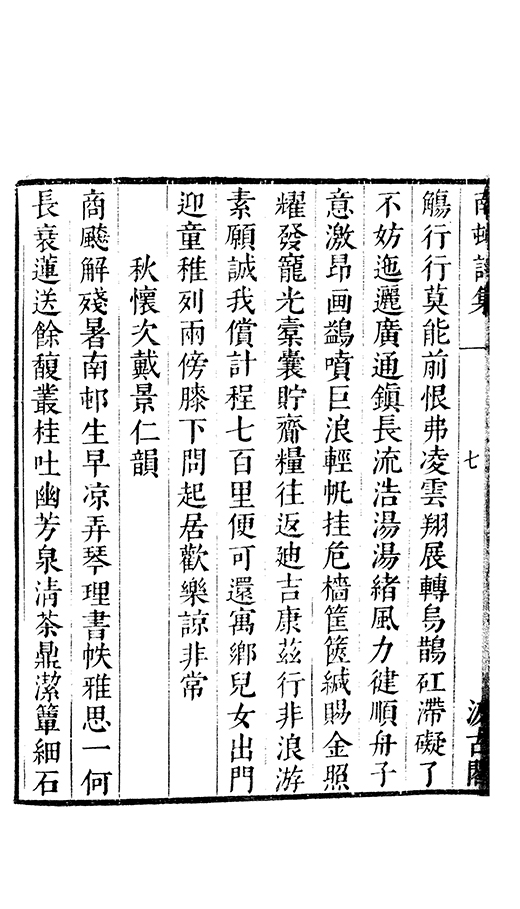 南邨詩集 一 七 汲古閣
觴行行莫能前恨弗凌雲翔展轉烏鵲矼滯礙了
不妨迤邐廣通鎮長流浩湯湯緒風力徤順舟子
意激昂画鷁噴巨浪輕帆挂危檣筐篋緘賜金照
耀發寵光橐囊貯齋糧往返廸吉康茲行非浪游
素願誠我償計程七百里便可還寓鄉兒女出門
迎童稚列兩傍膝下問起居歡樂諒非常
秋懷次戴景仁韻
商飇解殘暑南邨生早凉弄琴理書帙雅思一何
長衰蓮送餘馥叢桂吐幽芳泉清茶鼎潔簟細石